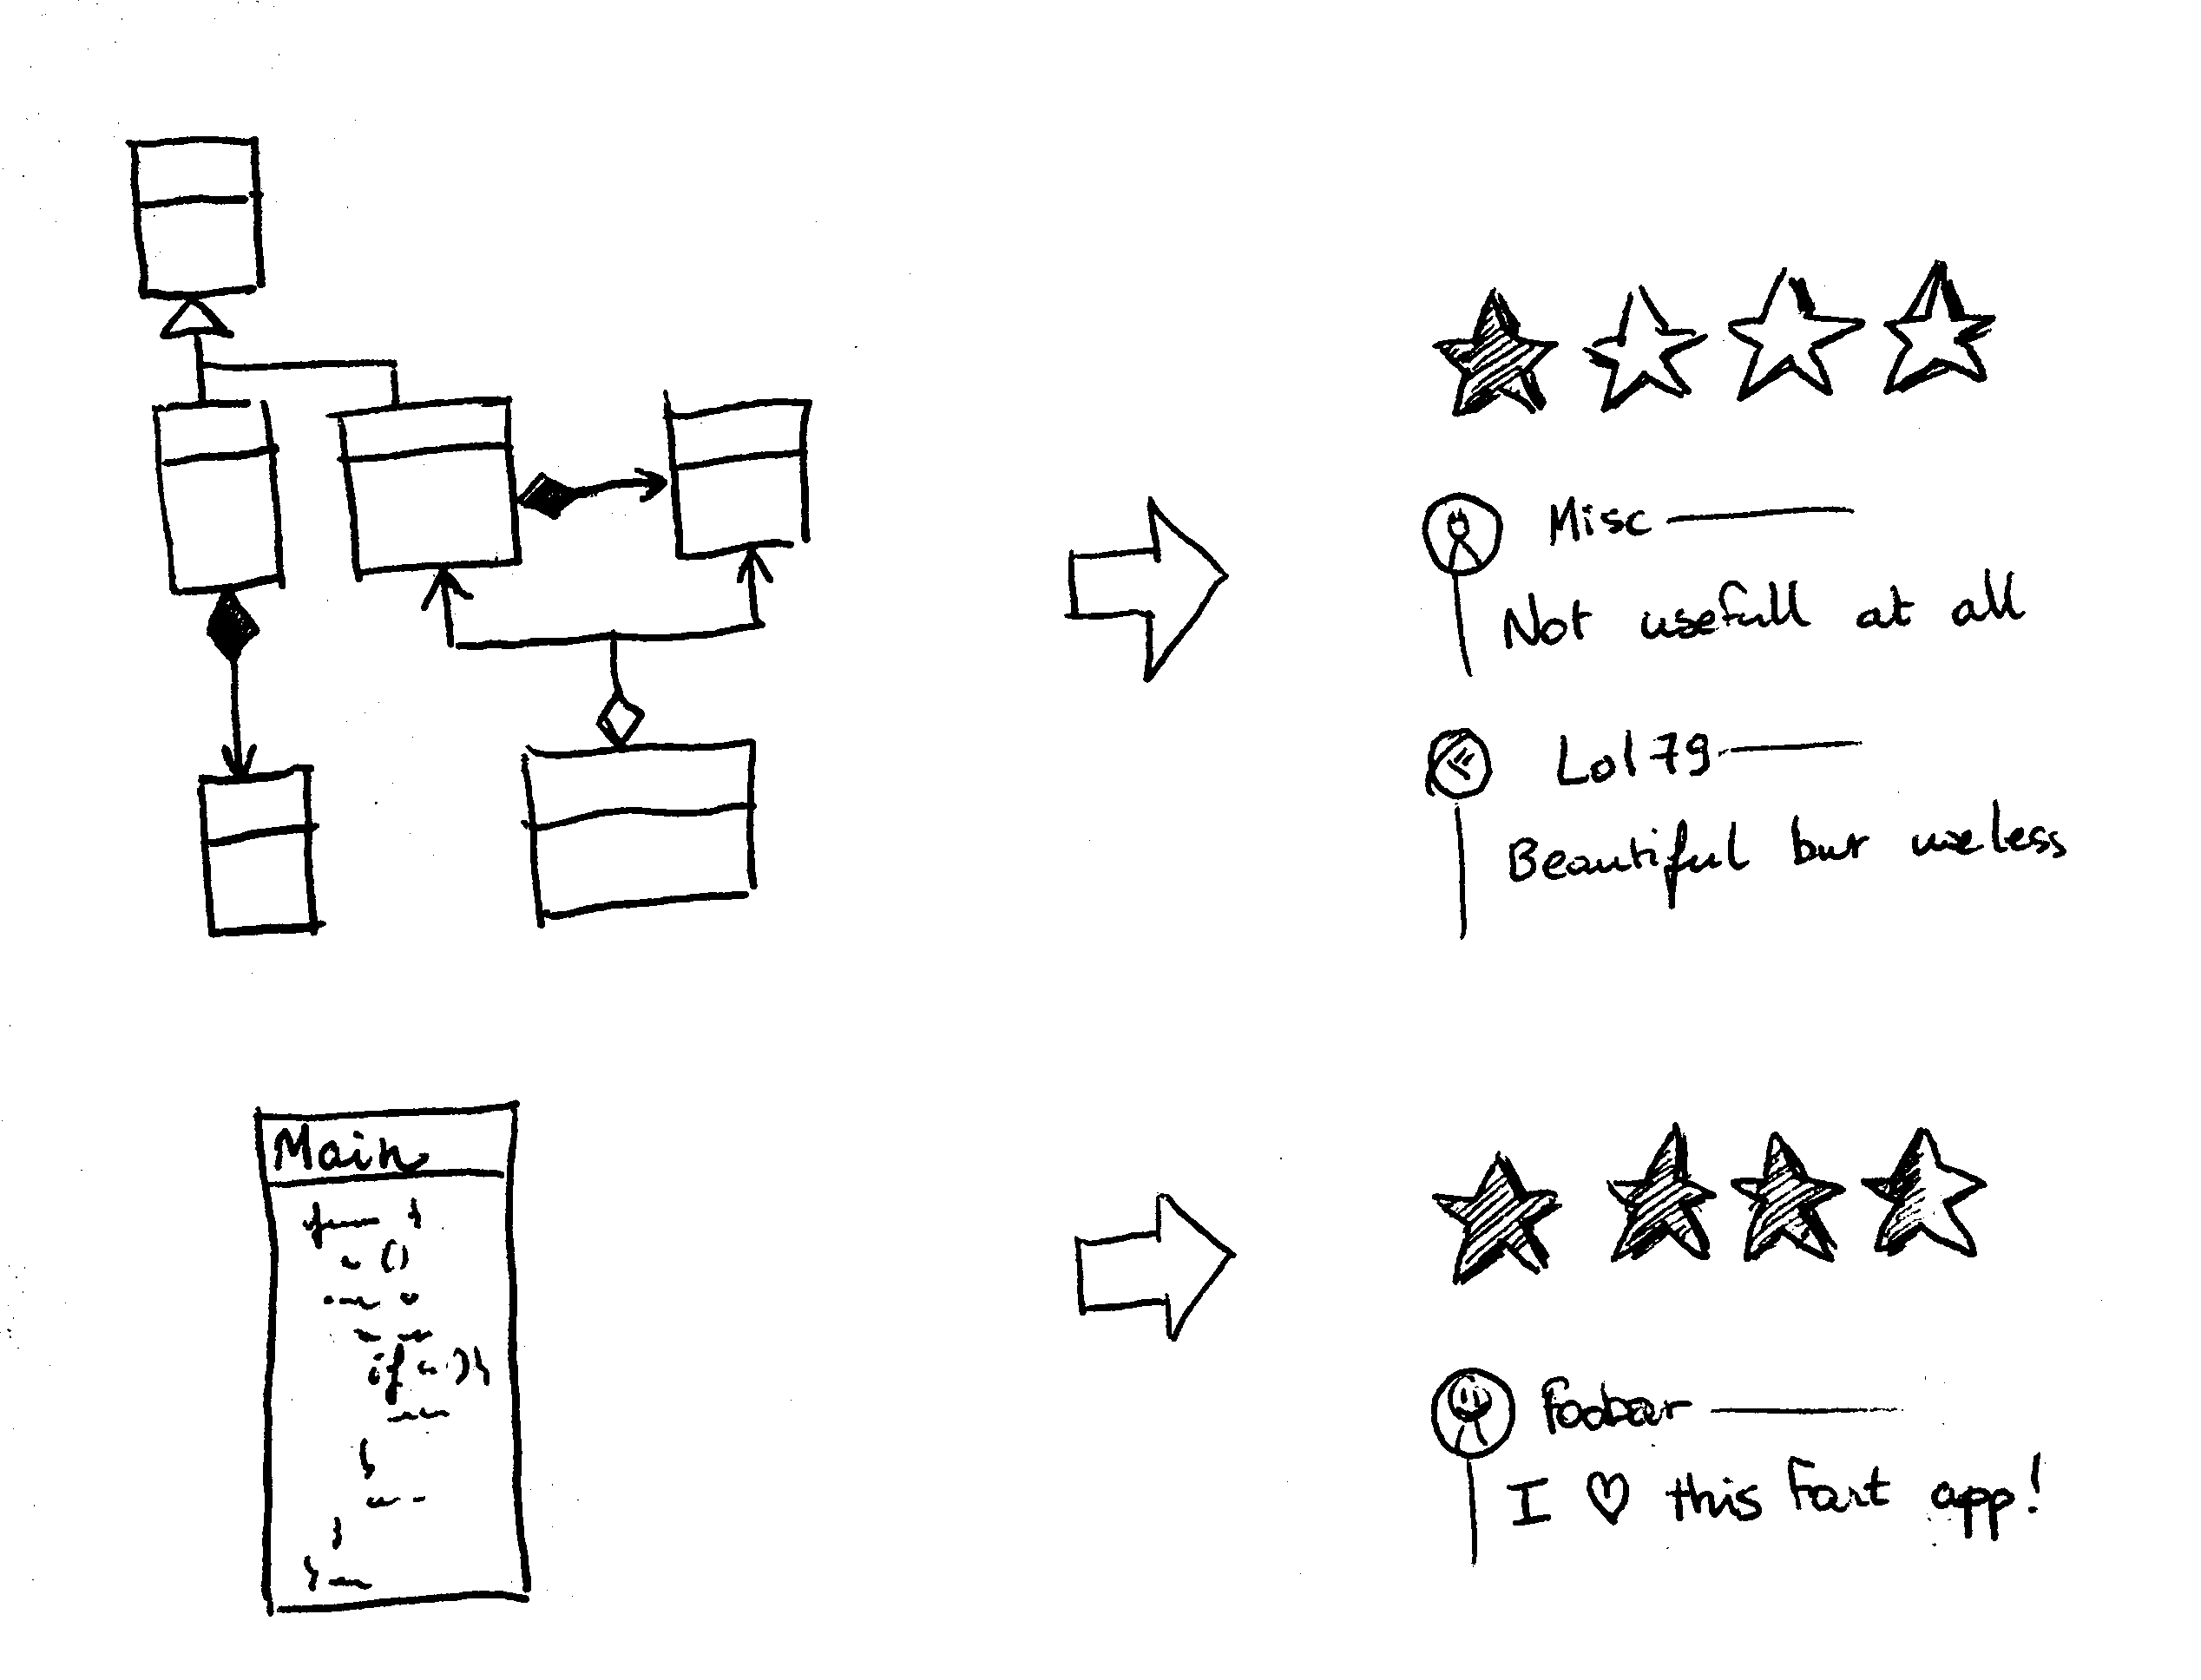 Misc
Not usefull at all
Lol79
Beautiful but useless
Main
()
if ) {
}
}
Foobar
I ♡ this fart app!